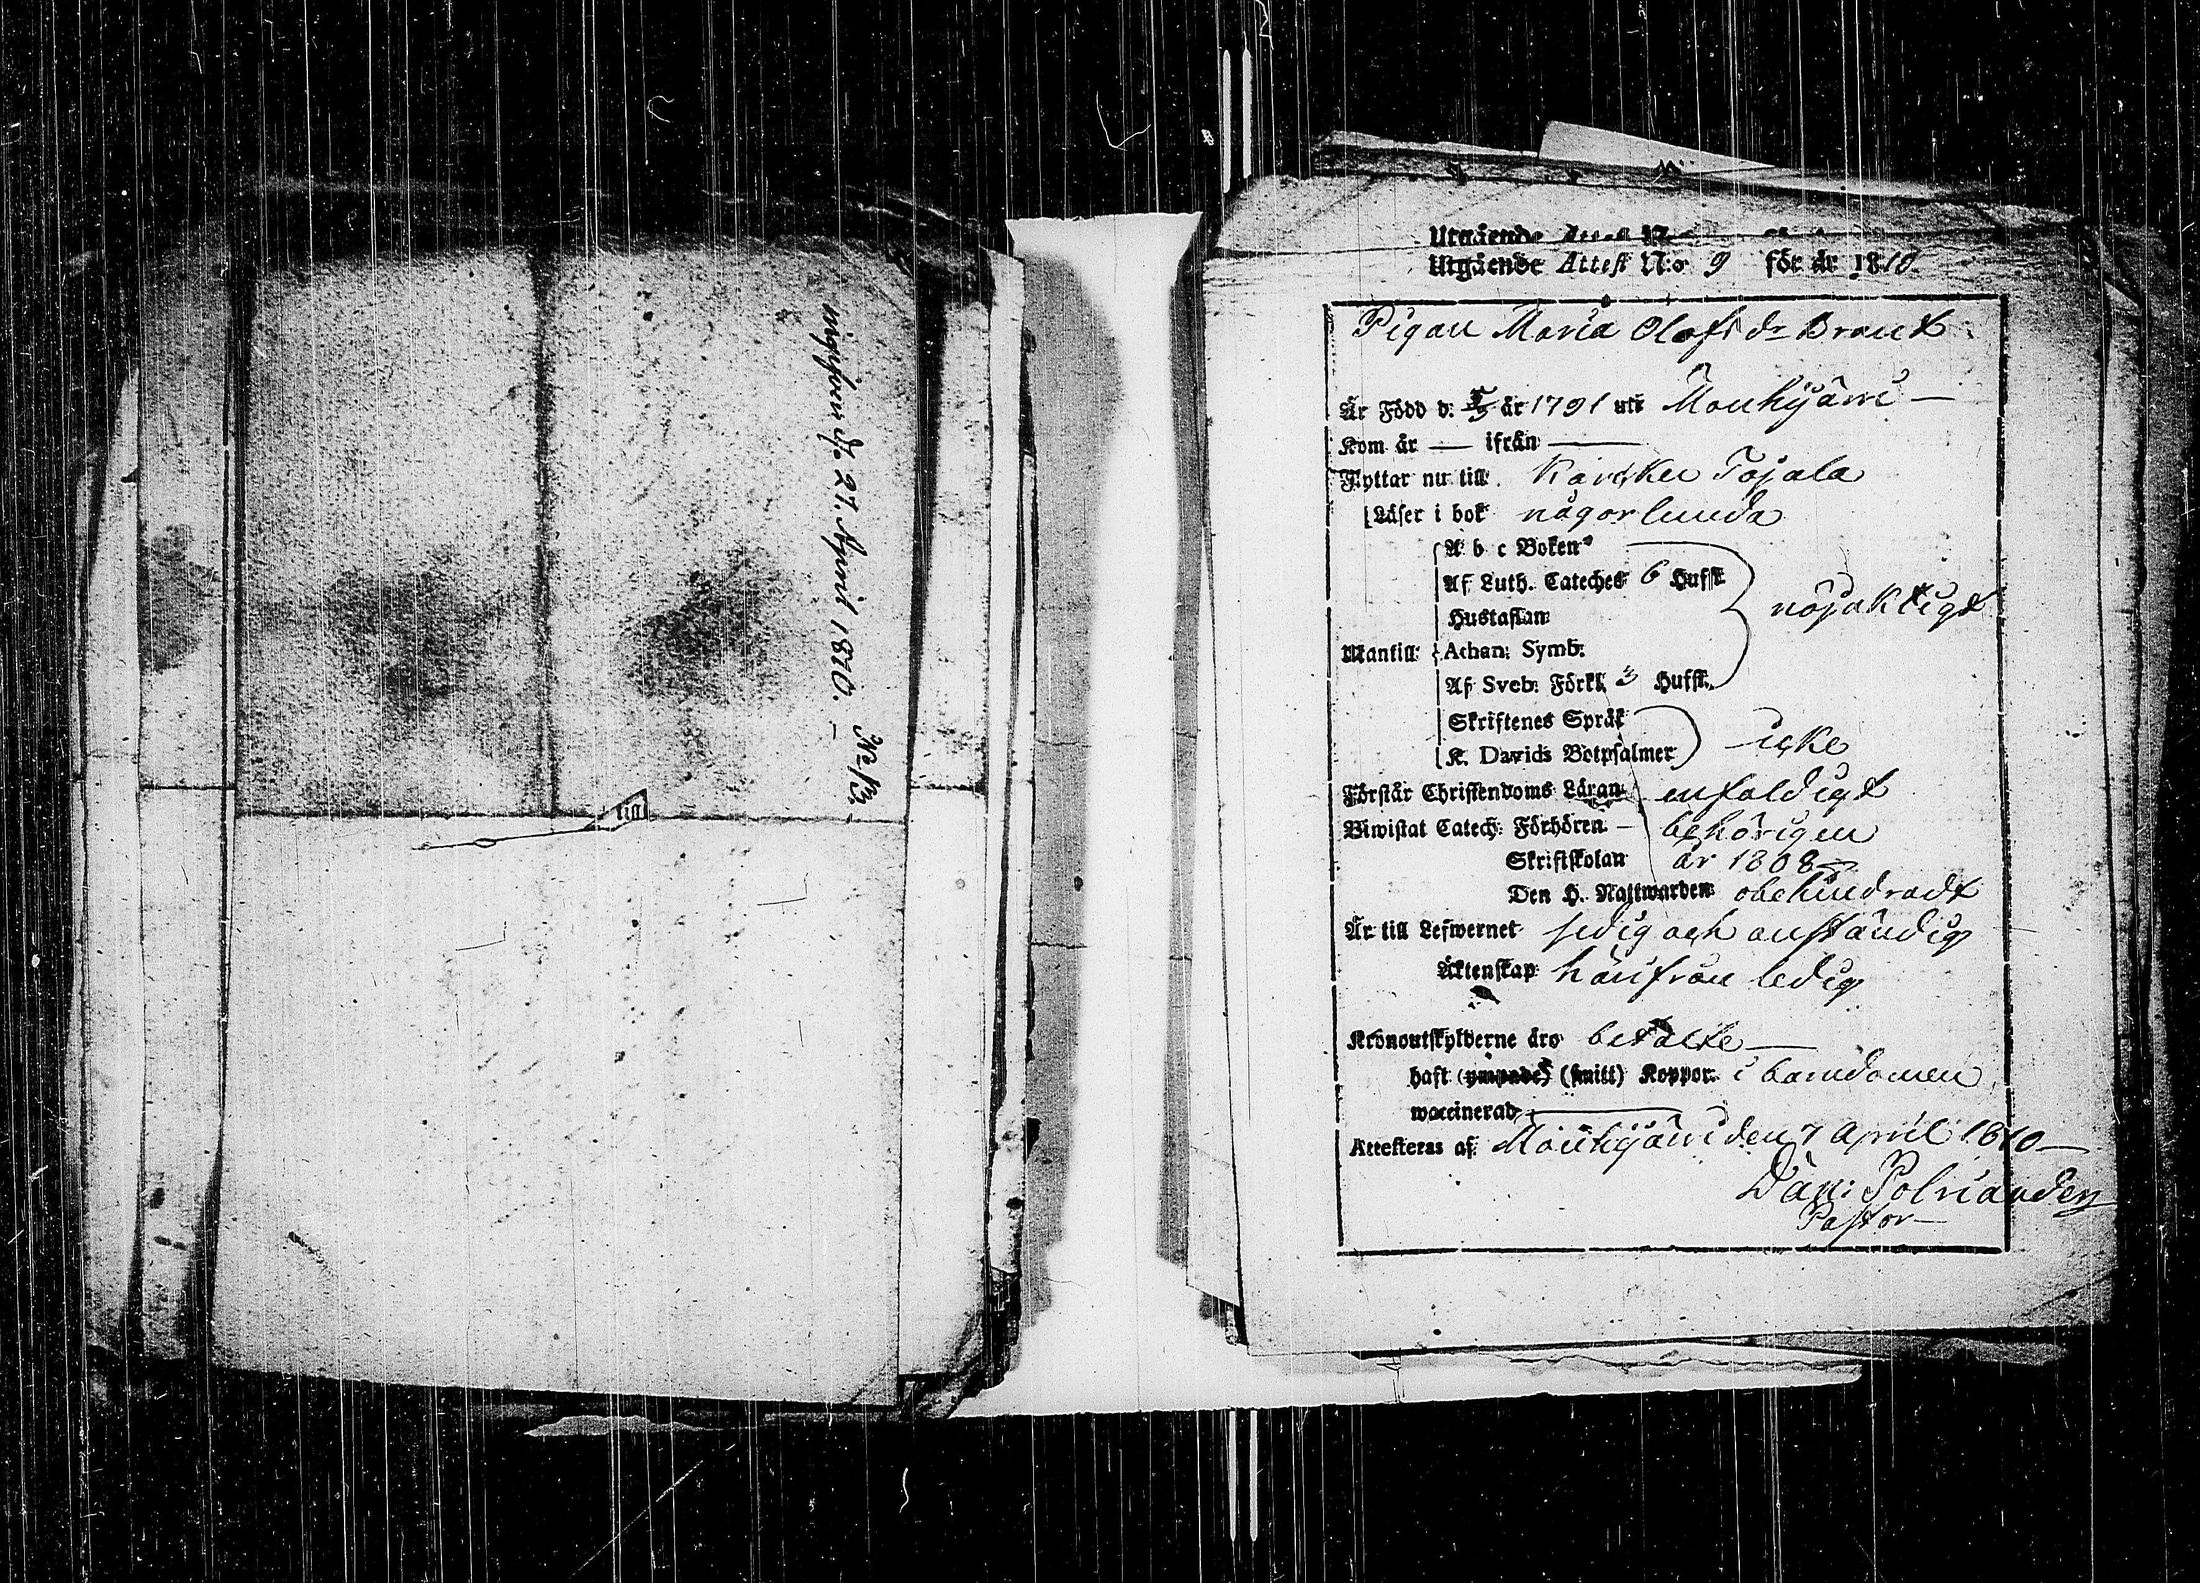 d. 27. April 1810. —
No 13.
till
Utgående Attest N:o
Utgående Attest N:o 9 för år 1810.
Pigan Maria Olofsdr Brant
Är Född d. 5/3 år 1791 uti Mouhijärvi —
Kom år — ifrån —
Flyttar nu till Karkku Tojala
Läser i bok någorlunda
A b c Boken
Af Luth. Cateches 6 Hufst.
nöjaktigt
Hustaflan
Utantill Athan: Symb:
Af Sveb: Förkl. 3 Hufst.
Skriftenes Språk
icke
K. Davids Botpsalmer
Förstår Christendoms Läran enfaldigt
Biwistat Catech: Förhören — behörigen
Skriftskolan år 1808
Den H. Nattwarden obehindradt
Är till Lefwernet sedig och anständig
Äktenskap härifrån ledig
Kronoutskylderne äro betalte —
haft (ympade) (smitt) Koppor i barndomen
waccinerad —
Attesteras af Mouhijärvi den 7 April 1810 —
Dan: Polviander
Pastor —